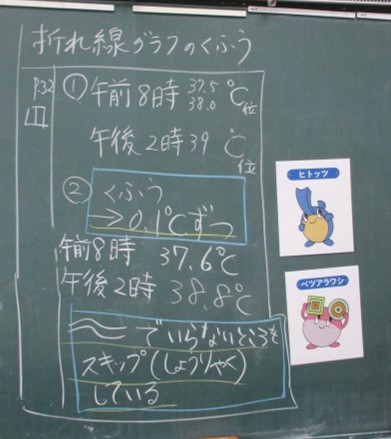 折れ線グラフのくふう
P.32
① 午前8時 37.5 38.0 ℃位
午後2時 39℃位
② くふう
→ 0.1℃ずつ
午前8時 37.6℃
午後2時 38.8℃
≈でいらないところを
スキップ(しょうりゃく)
している
ヒトッツ
ベツアラワシ